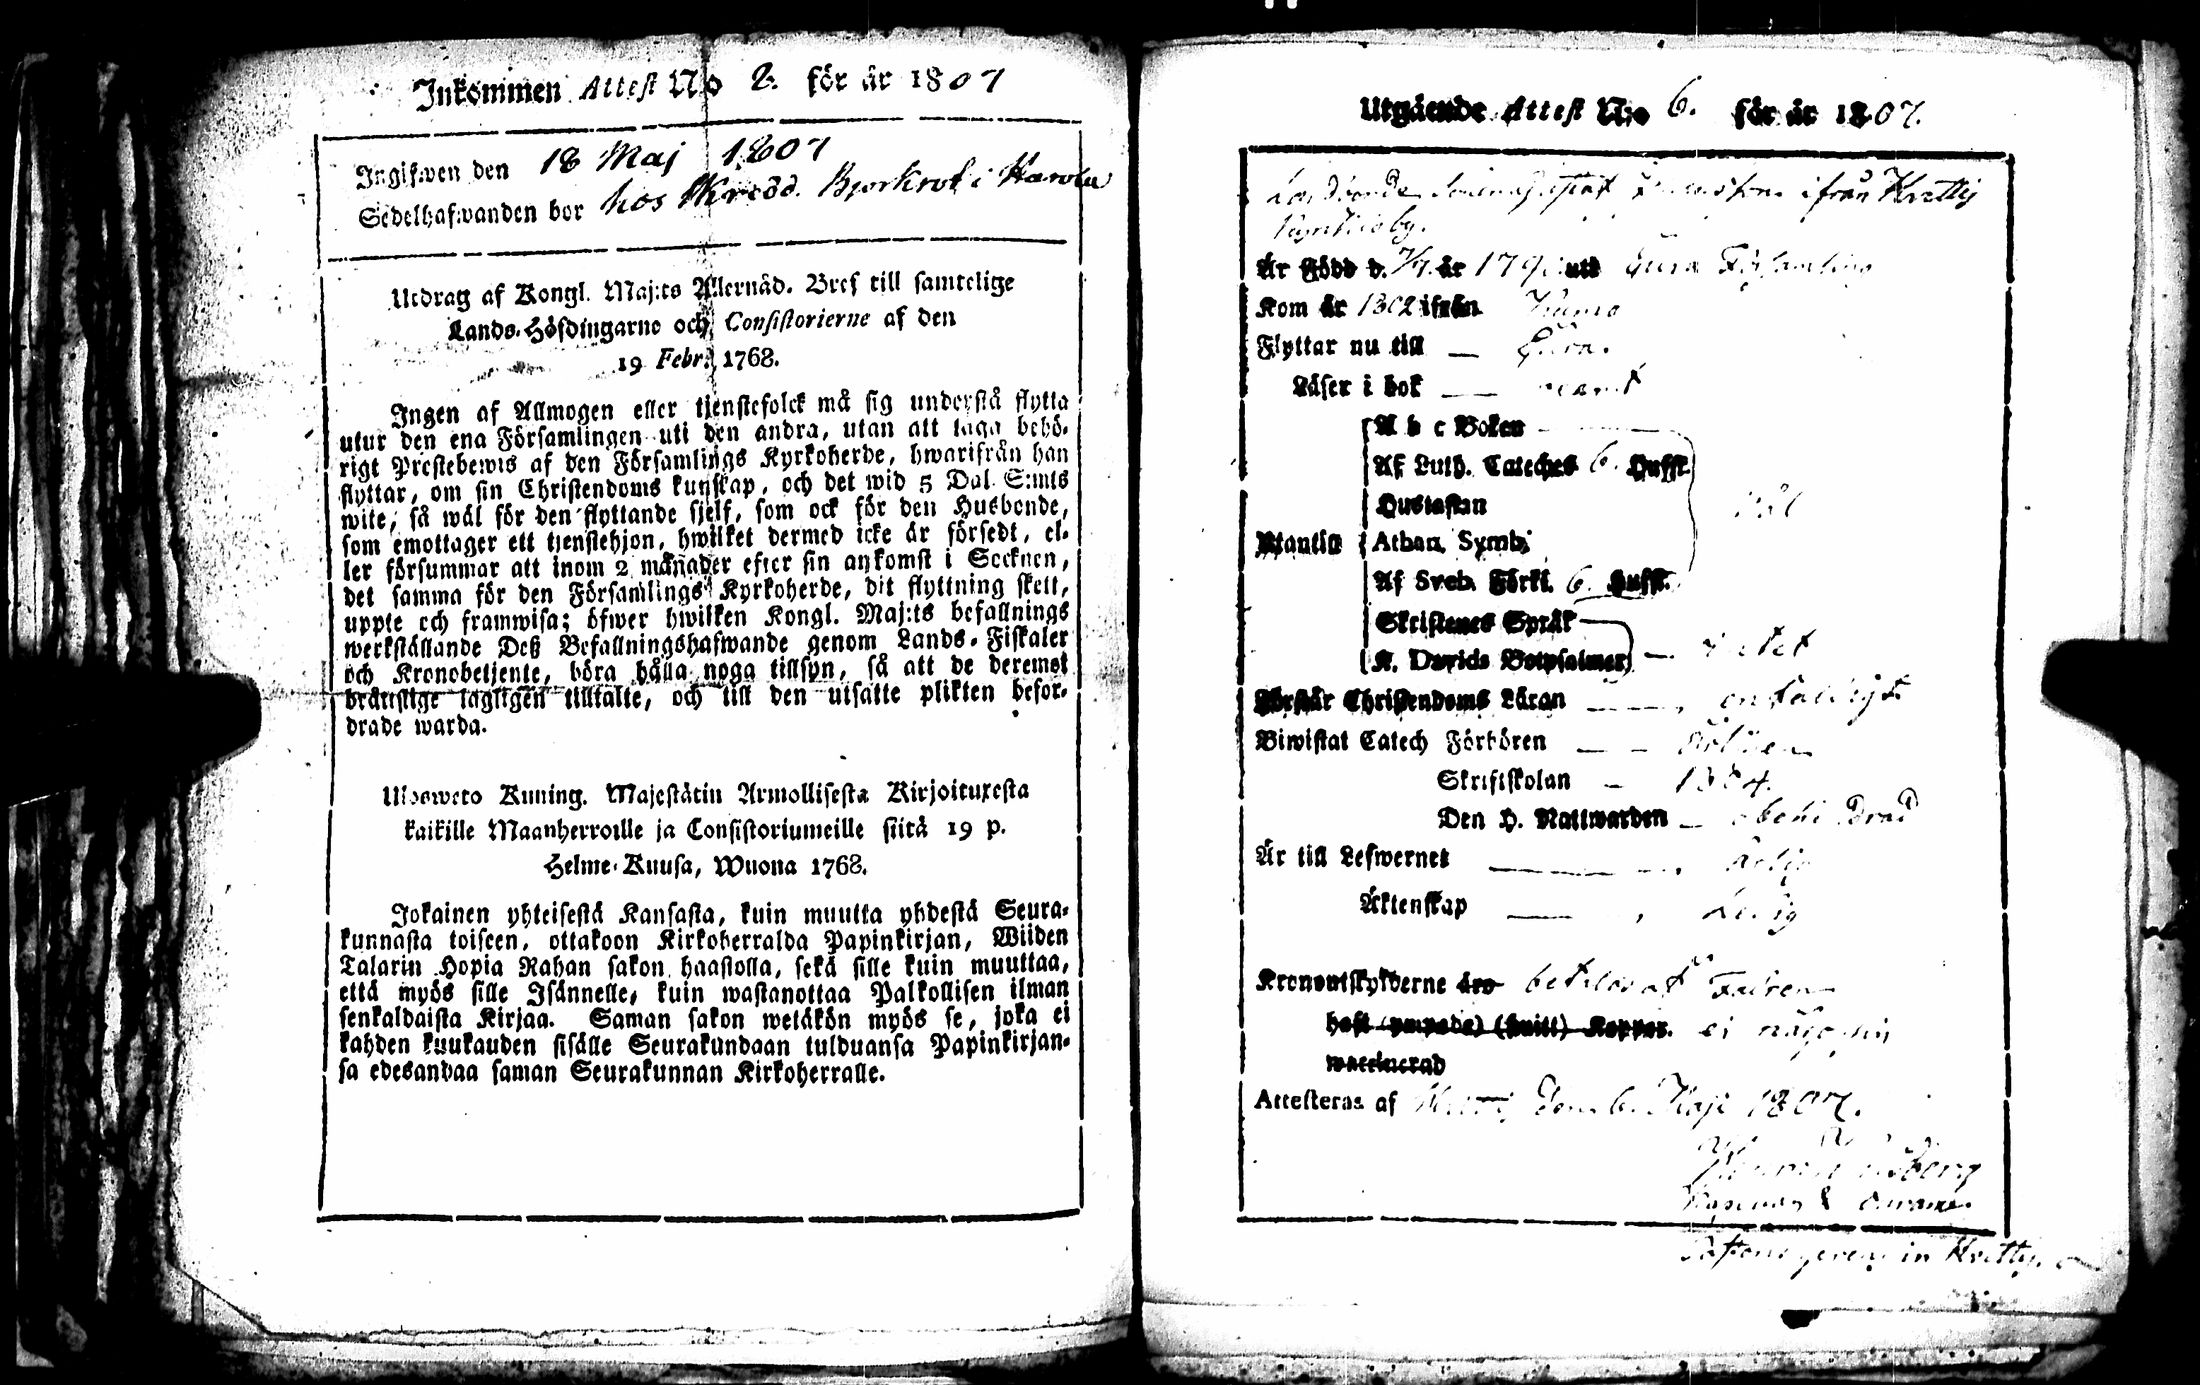 Inkommen Attest No 2. för år 1807
Ingifwen den 18 Maj 1807
Sedelhafwanden bor hos Skrädd. Björkrot i
Utdrag af Kongl. Maj:ts Allernåd. Bref till samtelige
Lands-Höfdingarne och Consistorierne af den
19 Febr. 1768.
Ingen af Allmogen eller tjenstefolck må sig understå flytta
utur den ena Församlingen uti den andra, utan att taga behö-
rigt Prestebewis af den Församlings Kyrkoherde, hwarifrån han
flyttar, om sin Christendoms kunskap, och det wid 5 Dal. S:mts
wite, så wäl för den flyttande sjelf, som ock för den Husbonde,
som emottager ett tjenstehjon, hwilket dermed icke är försedt, el-
ler försummar att inom 2 månader efter sin ankomst i Socknen,
det samma för den Församlings Kyrkoherde, dit flyttning skett,
uppte och framwisa; öfwer hwilken Kongl. Maj:ts befallnings
werkställande Deß Befallningshafwande genom Lands-Fiskaler
och Kronobetjente, böra hålla noga tillsyn, så att de deremot
bråttslige lagligen tilltalte, och till den utsatte plikten befor-
drade warda.
Ulosweto Kuning. Majestätin Armollisesta Kirjoituxesta
kaikille Maanherroille ja Consistoriumeille siitä 19 p.
Helme-Kuusa, Wuona 1768.
Jokainen yhteisestä Kansasta, kuin muutta yhdestä Seura-
kunnasta toiseen, ottakoon Kirkoherralda Papinkirjan, Wiiden
Talarin Hopia Rahan sakon haastolla, sekä sille kuin muuttaa,
että myös sille Isännelle, kuin wastanottaa Palkollisen ilman
senkaldaista Kirjaa. Saman sakon wetäkön myös se, joka ei
kahden kuukauden sisälle Seurakundaan tulduansa Papinkirjan-
sa edesandaa saman Seurakunnan Kirkoherralle.
Utgående Attest N:o 6. för år 1807.
ifrån Kvetty
by.
Är Född d. år uti Eura Församling
Kom år 1802 ifrån Kumo
Flyttar nu till — Eura.
Läser i bok —
A b c Boken
Af Luth. Cateches 6. Hufst.
Hustaflan
Utantill Athan. Symb.
Af Sveb. Förkl. 6. Hufst.
Skriftenes Språk
K. Davids Botpsalmer —
Förstår Christendoms Läran — enfaldigt
Biwistat Catech Förhören —
Skriftskolan — 1804.
Den H. Nattwarden — obehindrad
Är till Lefwernet — ärlig
Äktenskap — Ledig
Kronoutskylderne äro betalar af Fadren
haft (ympade) (huitt) Koppor. ei
waccinerad
Attesteras af den 6. Maji 1807.
in Kvetty.